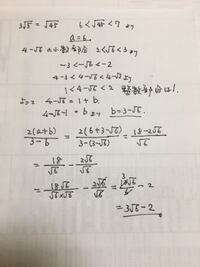 3√5 = √45  6 < √45 < 7 より
a = 6.
4-√6 の小数部分 2<√6<3 より
-3 < -√6 < -2
4-3 < 4-√6 < 4-2 より
1 < 4-√6 < 2 整数部分は1.
4-√6 = 1 + b.
4-√6-1 = b より b=3-√6.
2(a+b)/3-b = 2(6+3-√6)/3-(3-√6) = 18-2√6/√6
= 18/√6 - 2√6/√6
= 18√6/√6×√6 - 2√6/√6 = 18√6/6 - 2
= 3√6-2